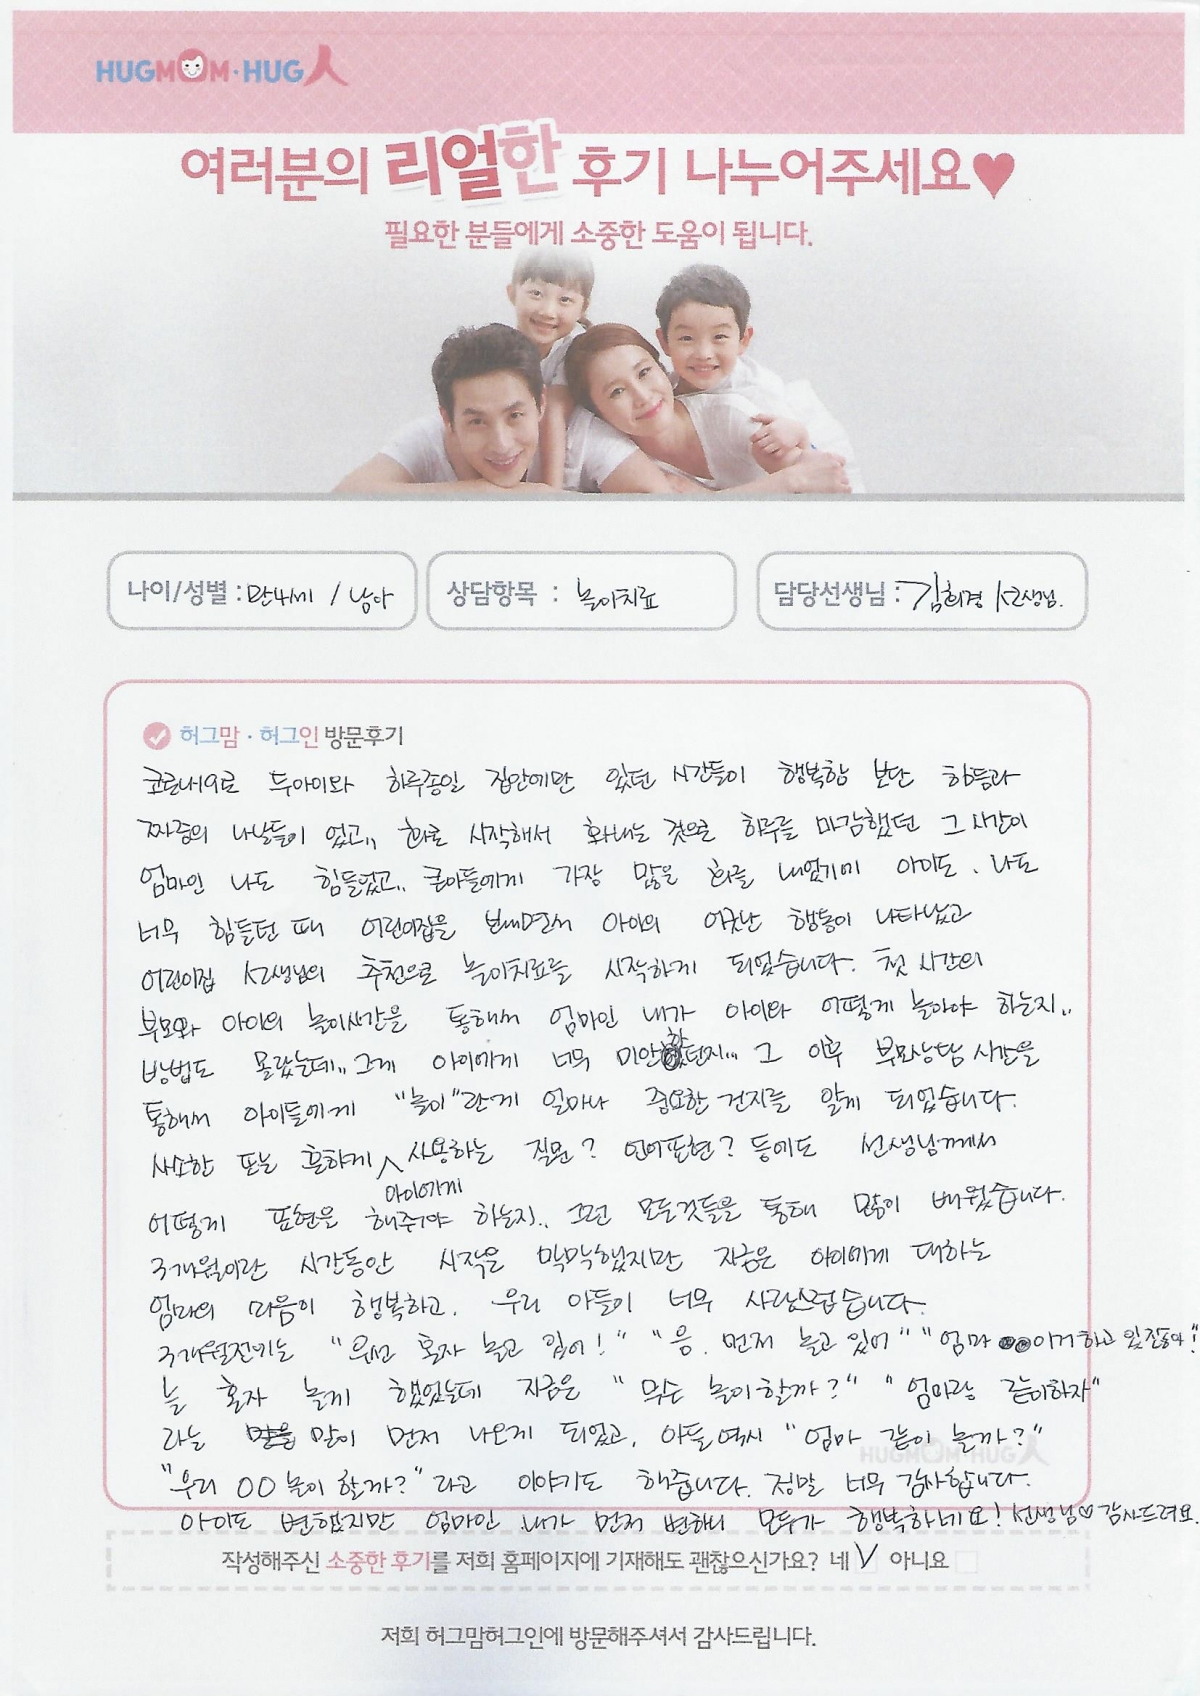 HUGMOM·HUG人
여러분의 리얼한 후기 나누어주세요♥
필요한 분들에게 소중한 도움이 됩니다.
나이/성별 : 만4세 / 남아
상담항목 : 놀이치료
담당선생님 : 김희경 선생님.
허그맘 · 허그인 방문후기
코로나19로 두아이와 하루종일 집안에만 있던 시간들이 행복함 보단 힘듦과
짜증의 나날들이 었고,, 화로 시작해서 화내는 것으로 하루를 마감했던 그 시간이
엄마인 나도 힘들었고,, 큰아들에게 가장 많은 화를 내었기에 아이도, 나도
너무 힘들던 때 어린이집을 보내면서 아이의 어긋난 행동이 나타났고
어린이집 선생님의 추천으로 놀이치료를 시작하게 되었습니다. 첫 시간의
부모와 아이의 놀이시간을 통해서 엄마인 내가 아이와 어떻게 놀아야 하는지,,
방법도 몰랐는데,, 그게 아이에게 너무 미안했던지,,, 그 이후 부모상담 시간을
통해서 아이들에게 "놀이"란게 얼마나 중요한 건지를 알게 되었습니다.
사소한 또는 흔하게 사용하는 질문? 언어표현? 등에도 선생님께서
아이에게
어떻게 표현을 해줘야 하는지,, 그런 모든것들을 통해 많이 배웠습니다.
3개월이란 시간동안 시작은 막막했지만 지금은 아이에게 대하는
엄마의 마음이 행복하고, 우리 아들이 너무 사랑스럽습니다.
3개월전에는 "우선 혼자 놀고 있어!" "응. 먼저 놀고 있어" "엄마 이거하고 있잖아!"
늘 혼자 놀게 했었는데 지금은 "무슨 놀이할까?" "엄마랑 같이하자"
라는 말이 먼저 나오게 되었고, 아들역시 "엄마 같이 놀까?"
"우리 OO놀이 할까?"라고 이야기도 해줍니다. 정말 너무 감사합니다.
아이도 변했지만 엄마인 내가 먼저 변하니 모두가 행복하네요! 선생님♡감사드려요.
HUGMOM·HUG人
작성해주신 소중한 후기를 저희 홈페이지에 기재해도 괜찮으신가요? 네 V 아니요
저희 허그맘허그인에 방문해주셔서 감사드립니다.